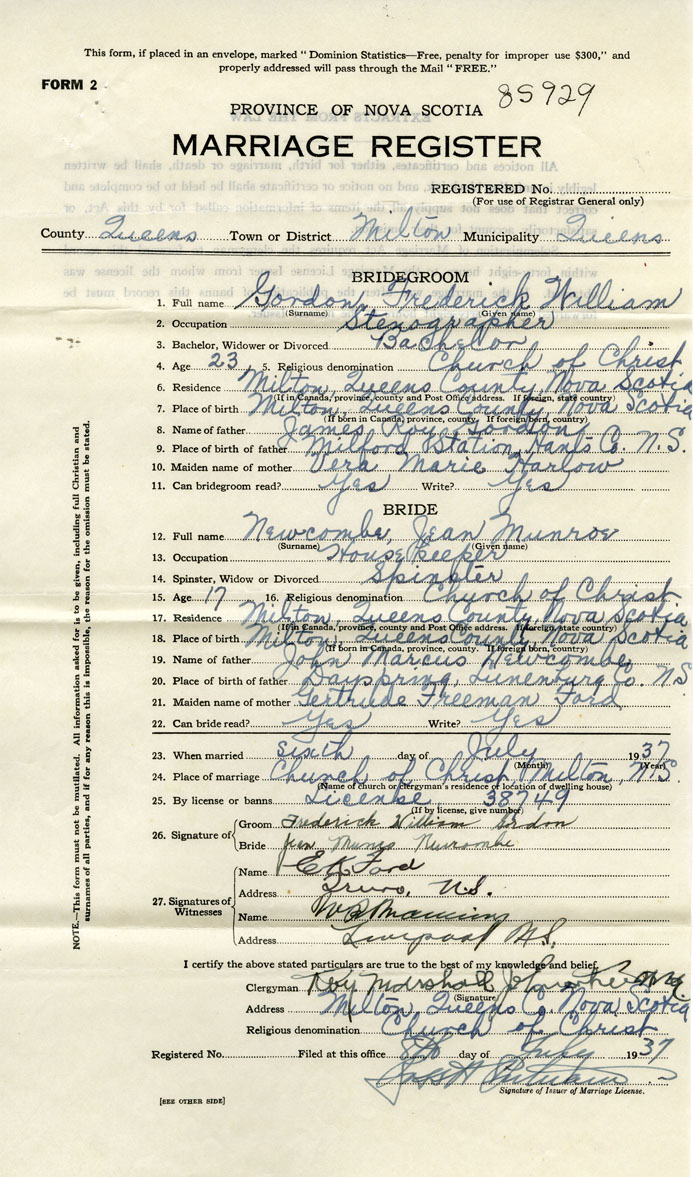 This form, if placed in an envelope, marked "Dominion Statistics—Free, penalty for improper use $300," and
properly addressed will pass through the Mail "FREE."
FORM 2
85929
PROVINCE OF NOVA SCOTIA
MARRIAGE REGISTER
REGISTERED No.
(For use of Registrar General only)
County Queens Town or District Milton Municipality Queens
BRIDEGROOM
1. Full name Gordon, Frederick William
(Surname) (Given name)
2. Occupation Stenographer
3. Bachelor, Widower or Divorced Bachelor
4. Age 23 5. Religious denomination Church of Christ
6. Residence Milton, Queens County, Nova Scotia
(If in Canada, province, county and Post Office address. If foreign, state country)
7. Place of birth Milton, Queens County, Nova Scotia
(If born in Canada, province, county. If foreign born, country)
8. Name of father James Roy Gordon
9. Place of birth of father Milford Station, Hants Co. N.S.
10. Maiden name of mother Vera Marie Harlow
11. Can bridegroom read? Yes Write? Yes
BRIDE
12. Full name Newcombe, Jean Munroe
(Surname) (Given name)
13. Occupation Housekeeper
14. Spinster, Widow or Divorced Spinster
15. Age 17 16. Religious denomination Church of Christ
17. Residence Milton, Queens County, Nova Scotia
(If in Canada, province, county and Post Office address. If foreign, state country)
18. Place of birth Milton, Queens County, Nova Scotia
(If born in Canada, province, county. If foreign born, country)
19. Name of father John Marcus Newcombe
20. Place of birth of father Dayspring, Lunenburg Co. N.S.
21. Maiden name of mother Gertrude Freeman Ford
22. Can bride read? Yes Write? Yes
23. When married sixth day of July 1937
(Month) (Year)
24. Place of marriage Church of Christ, Milton, N.S.
(Name of church or clergyman's residence or location of dwelling house)
25. By license or banns License 38749
(If by license, give number)
26. Signature of Groom Frederick William Gordon
Bride Jean Munro Newcombe
27. Signatures of Witnesses Name E K Ford
Address Truro, N.S.
Name
Address Liverpool N.S.
I certify the above stated particulars are true to the best of my knowledge and belief,
Clergyman Roy Marshall
(Signature)
Address Milton, Queens Co. Nova Scotia
Religious denomination Church of Christ
Registered No. Filed at this office 8th day of July 1937
Signature of Issuer of Marriage License.
[SEE OTHER SIDE]
NOTE.—This form must not be mutilated. All information asked for is to be given, including full Christian and
surnames of all parties, and if for any reason this is impossible, the reason for the omission must be stated.